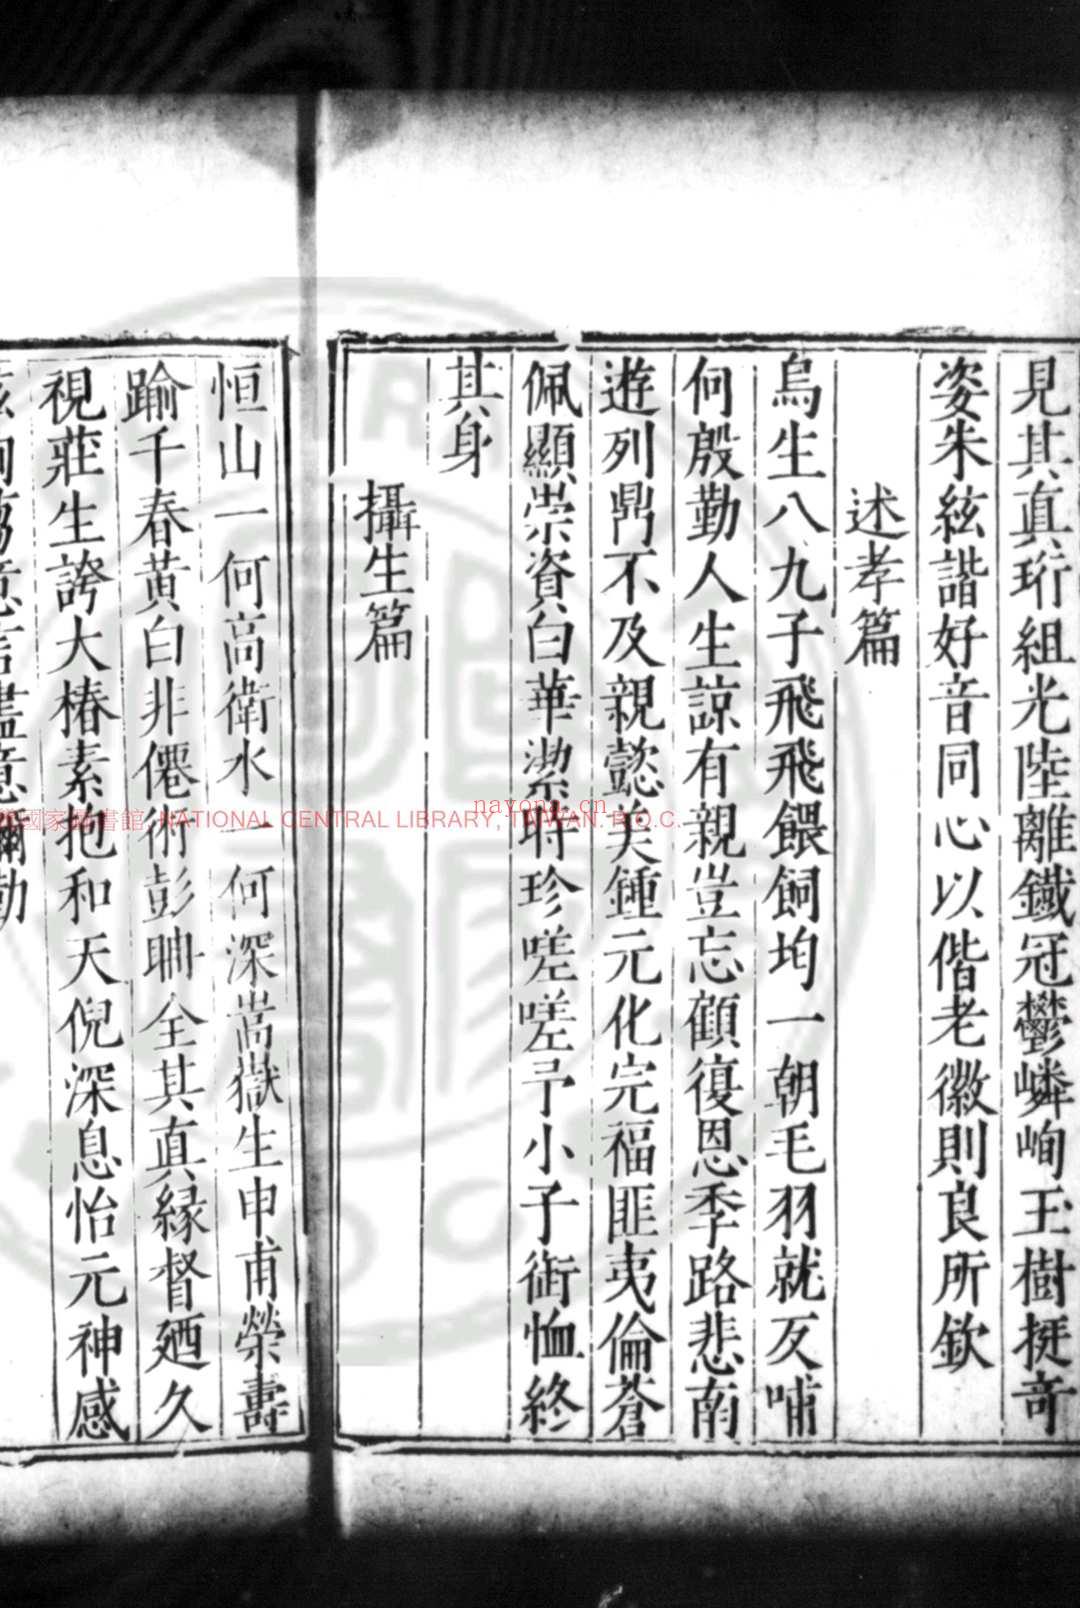 見其真珩組光陸離鐵冠鬱嶙峋玉樹挺奇
姿朱絃諧好音同心以偕老徽則良所欽
述孝篇
烏生八九子飛飛餵飼均一朝毛羽就反哺
何殷勤人生諒有親豈忘顧復恩季路悲南
遊列鼎不及親懿美鍾元化完福匪夷倫蒼
佩顯崇資白華潔時珍嗟嗟予小子銜恤終
其身
攝生篇
恒山一何高衛水一何深嵩嶽生申甫榮壽
踰千春黄白非僊術彭聃全其真緣督廼久
視莊生誇大椿素抱和天倪深息怡元神感
意言盡意彌勤
國家圖書館, NATIONAL CENTRAL LIBRARY, TAIWAN. R.O.C.
nayona.cn